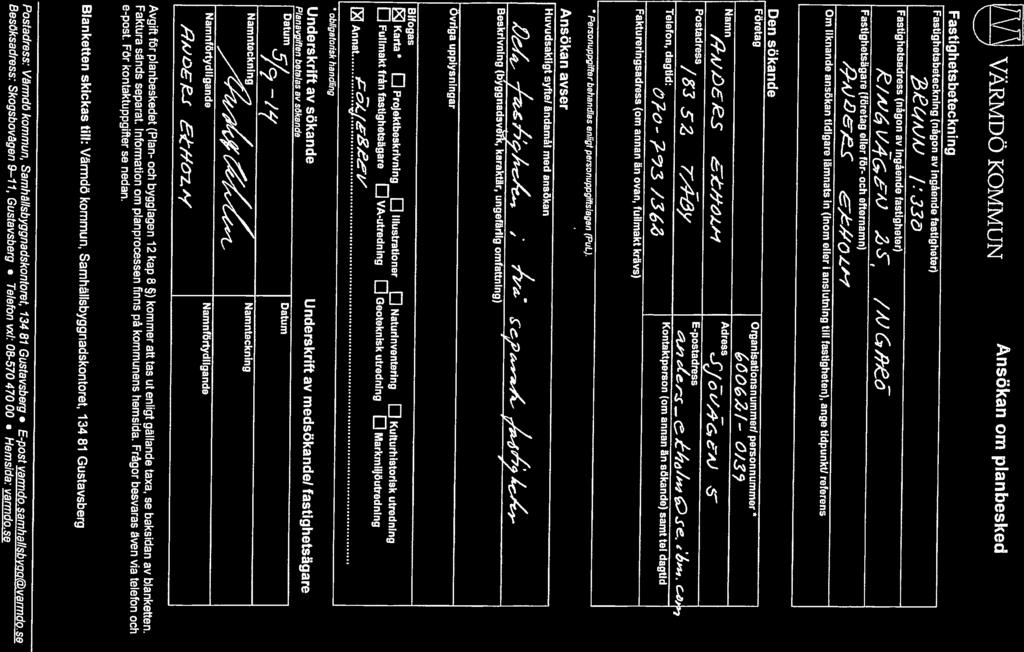 VÄRMDÖ KOMMUN
Ansökan om planbesked
Fastighetsbeteckning
Fastighetsbeteckning (någon av ingående fastigheter)
BRUNN 1:330
Fastighetsadress (någon av ingående fastigheter)
RINGVÄGEN 25, INGARÖ
Fastighetsägare (företag eller för- och efternamn)
ANDERS EKHOLM
Om liknande ansökan tidigare lämnats in (inom eller i anslutning till fastigheten), ange tidpunkt/ referens
Den sökande
Företag
Organisationsnummer/ personnummer *
600621-0139
Namn
ANDERS EKHOLM
Adress
SJÖVÄGEN 5
Postadress
183 52 TÄBY
E-postadress
anders_ekholm@se.ibm.com
Telefon, dagtid
070-793 1362
Kontaktperson (om annan än sökande) samt tel dagtid
Faktureringsadress (om annan än ovan, fullmakt krävs)
* Personuppgifter behandlas enligt personuppgiftslagen (PuL).
Ansökan avser
Huvudsakligt syfte/ ändamål med ansökan
Dela fastigheten i två separata fastigheter
Beskrivning (byggnadsverk, karaktär, ungefärlig omfattning)
Övriga upplysningar
Bifogas
☒ Karta* ☐ Projektbeskrivning ☐ Illustrationer ☐ Naturinventering ☐ Kulturhistorisk utredning
☐ Fullmakt från fastighetsägare ☐ VA-utredning ☐ Geoteknisk utredning ☐ Markmiljöutredning
☒ Annat FÖLJEBREV
* obligatorisk handling
Underskrift av sökande
Underskrift av medsökande/ fastighetsägare
Planavgiften betalas av sökande
Datum 5/9-14
Datum
Namnteckning
Namnteckning
Namnförtydligande
ANDERS EKHOLM
Namnförtydligande
Avgift för planbeskedet (Plan- och bygglagen 12 kap 8 §) kommer att tas ut enligt gällande taxa, se baksidan av blanketten.
Faktura sänds separat. Information om planprocessen finns på kommunens hemsida. Frågor besvaras även via telefon och
e-post. För kontaktuppgifter se nedan.
Blanketten skickas till: Värmdö kommun, Samhällsbyggnadskontoret, 134 81 Gustavsberg
Postadress: Värmdö kommun, Samhällsbyggnadskontoret, 134 81 Gustavsberg • E-post varmdo.samhallsbygg@varmdo.se
Besöksadress: Skogsbovägen 9–11, Gustavsberg • Telefon vxl: 08-570 470 00 • Hemsida: varmdo.se